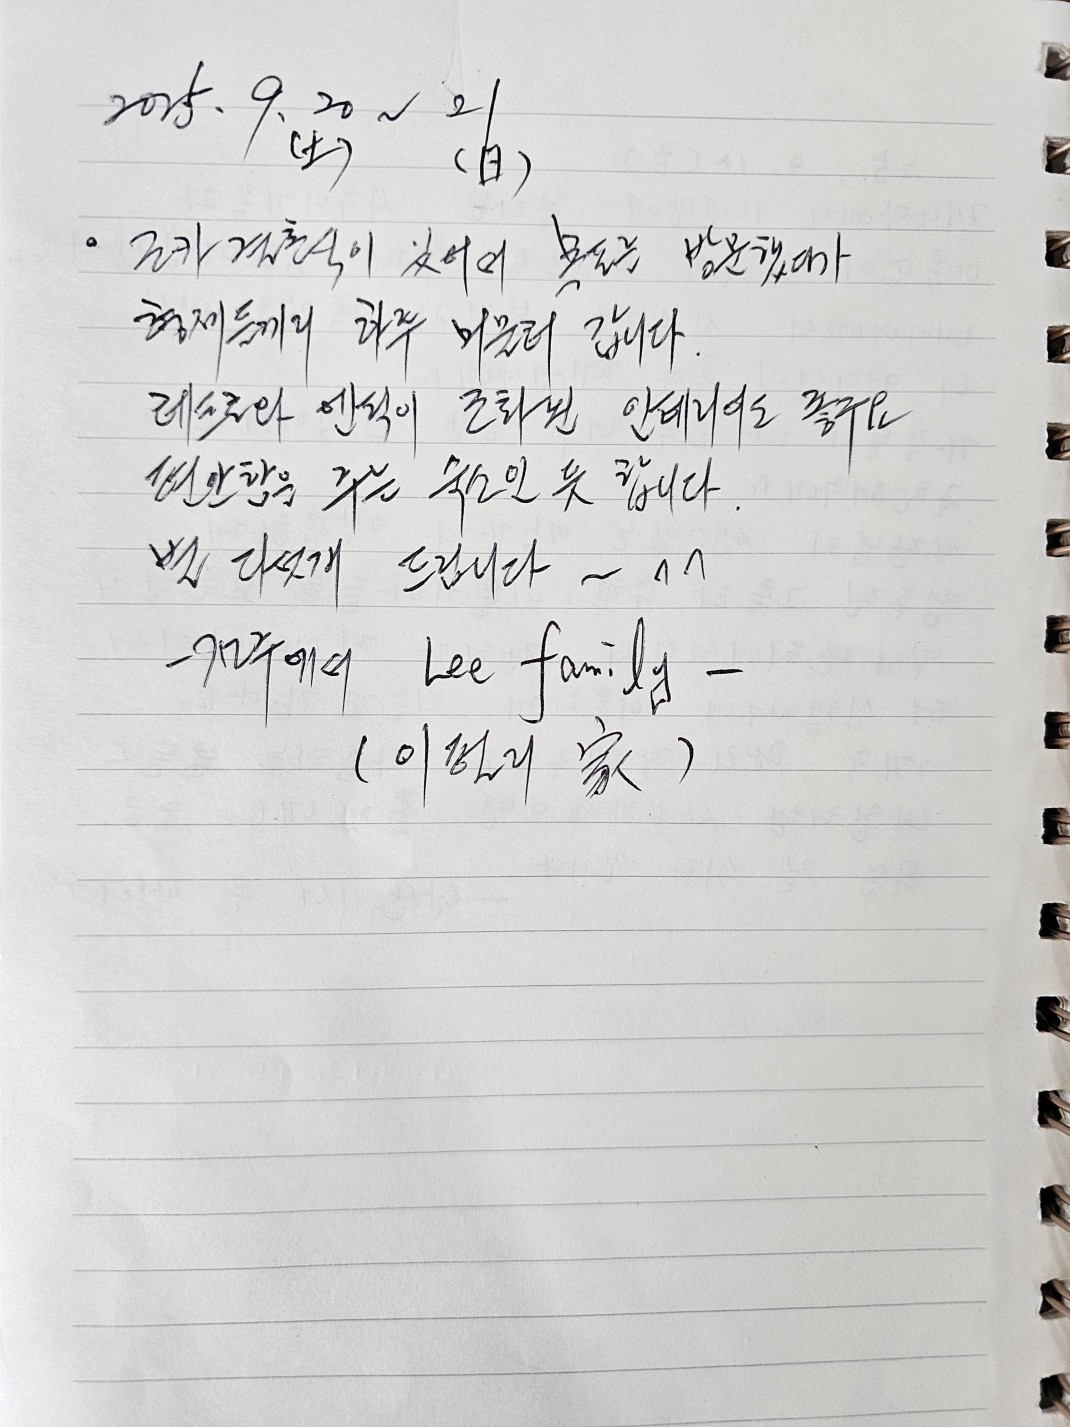 2025. 9. 20 ~ 21
(土) (日)
• 조카 결혼식이 있어서 목포를 방문했다가
형제들끼리 하루 머물러 갑니다.
레스토와 엔식이 조화된 인테리어도 좋구요
편안함을 주는 숙소인 듯 합니다.
별 다섯개 드립니다 ~ ^^
에서 Lee family -
(이 家)